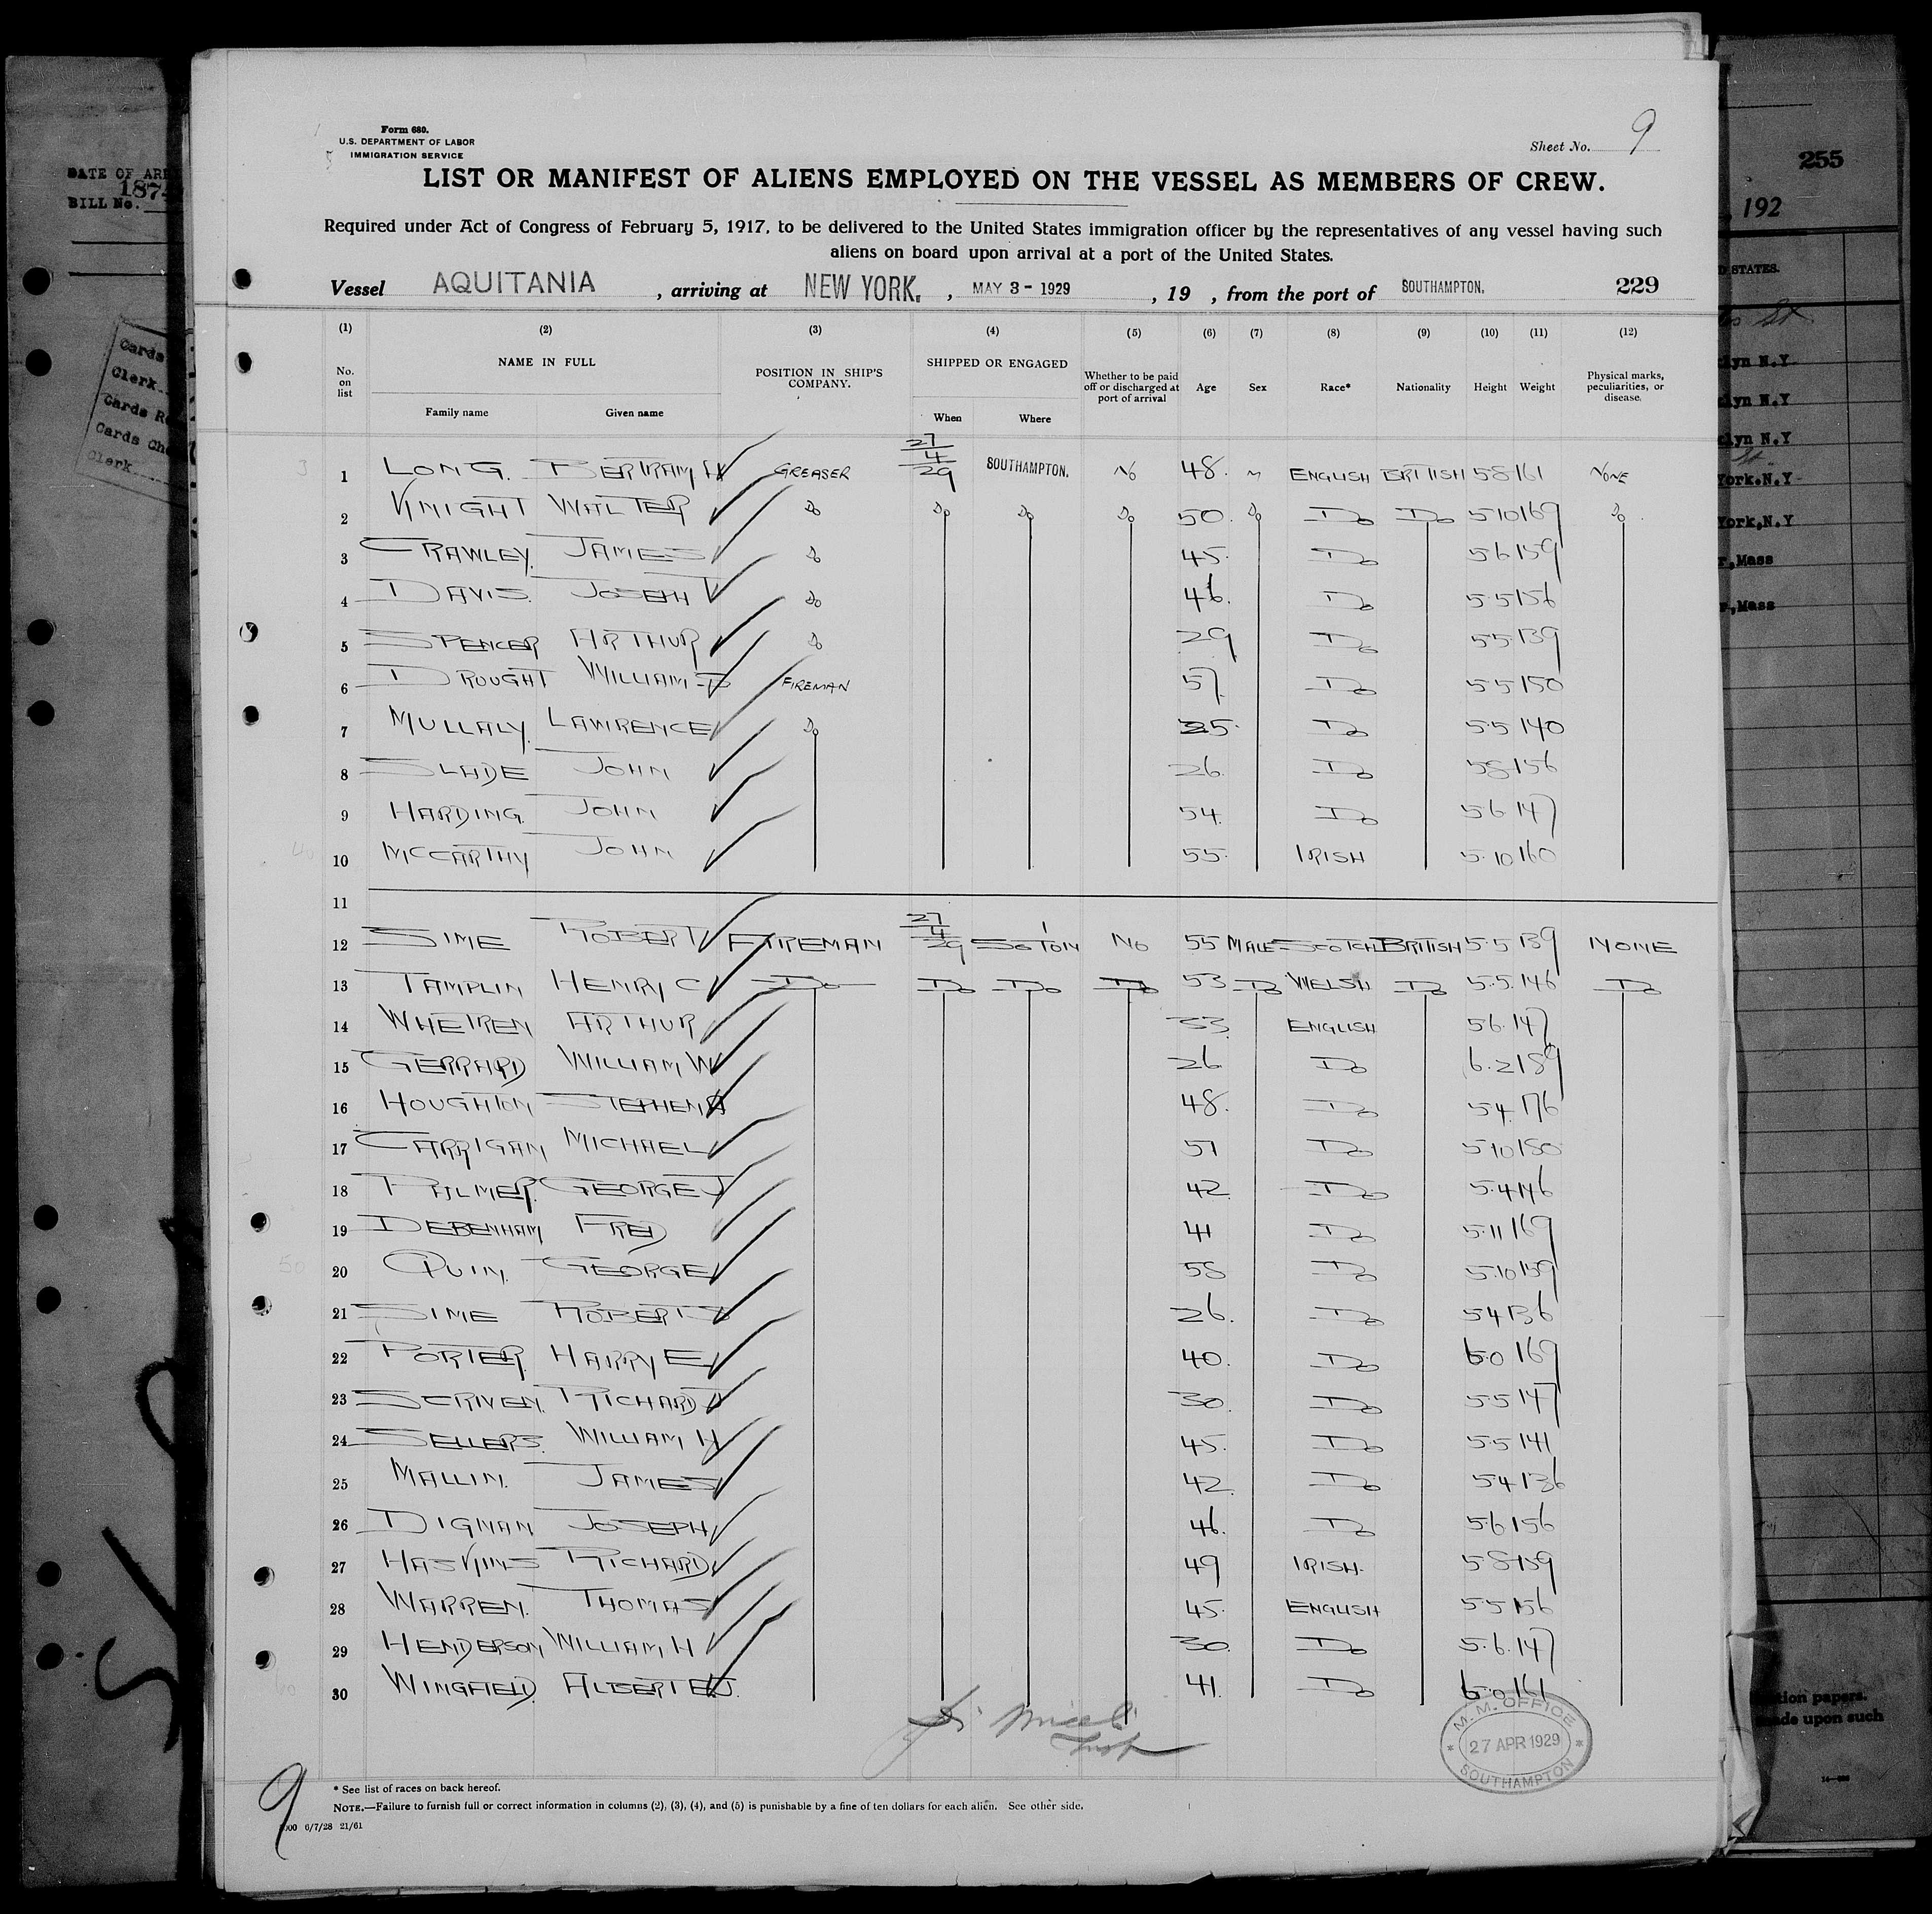 Form 680.
U.S. DEPARTMENT OF LABOR
IMMIGRATION SERVICE
Sheet No. 9
LIST OR MANIFEST OF ALIENS EMPLOYED ON THE VESSEL AS MEMBERS OF CREW.
Required under Act of Congress of February 5, 1917, to be delivered to the United States immigration officer by the representatives of any vessel having such
aliens on board upon arrival at a port of the United States.
Vessel AQUITANIA, arriving at NEW YORK., MAY 3 - 1929, 19 , from the port of SOUTHAMPTON. 229
(1) (2) (3) (4) (5) (6) (7) (8) (9) (10) (11) (12)
No. on list NAME IN FULL Family name Given name POSITION IN SHIP'S COMPANY. SHIPPED OR ENGAGED When Where Whether to be paid off or discharged at port of arrival Age Sex Race* Nationality Height Weight Physical marks, peculiarities, or disease.
1 LONG. BERTRAM H GREASER 27/4/29 SOUTHAMPTON. NO 48. M ENGLISH BRITISH 5 8 161 NONE
2 KNIGHT WALTER Do Do Do Do 50. Do Do Do 5 10 169 Do
3 CRAWLEY. JAMES Do 45. Do 5 6 159
4 DAVIS. JOSEPH T Do 46. Do 5 5 156
5 SPENCER ARTHUR Do 29 Do 5 5 139
6 DROUGHT WILLIAM FIREMAN 57. Do 5 5 150
7 MULLALY. LAWRENCE Do 25. Do 5 5 140
8 SLADE JOHN 26. Do 5 8 156
9 HARDING. JOHN 54. Do 5 6 147
10 MCCARTHY JOHN 55. IRISH 5.10 160
11
12 SIME ROBERT FIREMAN 27/4/29 SOTON NO 55 MALE SCOTCH BRITISH 5 5 139 NONE
13 TAMPLIN HENRY C Do Do Do Do 53 Do WELSH Do 5.5. 146 Do
14 WHETREN ARTHUR 33 ENGLISH 5 6. 147
15 GERRARD WILLIAM W 26 Do 6.2 189
16 HOUGHTON STEPHEN A 48. Do 5 4. 176
17 CARRIGAN MICHAEL 51 Do 5 10 180
18 PALMER. GEORGE J 42. Do 5.4 146
19 DEBENHAM FRED 41 Do 5.11 169
20 QUIN. GEORGE 58 Do 5.10 159
21 SIME ROBERT S 26. Do 5 4 136
22 PORTER. HARRY E 40. Do 6.0 169
23 SCRIVEN. RICHARD J 30. Do 5 5 147
24 SELLERS. WILLIAM H 45. Do 5 5 141
25 MALLIN. JAMES 42. Do 5 4 136
26 DIGNAN JOSEPH 46. Do 5 6 156
27 HASKINS RICHARD 49 IRISH. 5 8 159
28 WARREN. THOMAS 45. ENGLISH 5 5 156
29 HENDERSON WILLIAM H 30. Do 5.6. 147
30 WINGFIELD. ALBERT E.J. 41. Do 6.0 161
M. M. OFFICE
* 27 APR 1929 *
SOUTHAMPTON
* See list of races on back hereof.
NOTE.—Failure to furnish full or correct information in columns (2), (3), (4), and (5) is punishable by a fine of ten dollars for each alien. See other side.
6/7/28 21/61
9
DATE OF ARR
187
BILL No.
Cards
Clerk
Cards R
Cards Che
Clerk
255
, 192
D STATES.
St
lyn N.Y
lyn N.Y
lyn N.Y
York.N.Y
York,N.Y
r,Mass
r,Mass
tion papers.
made upon such